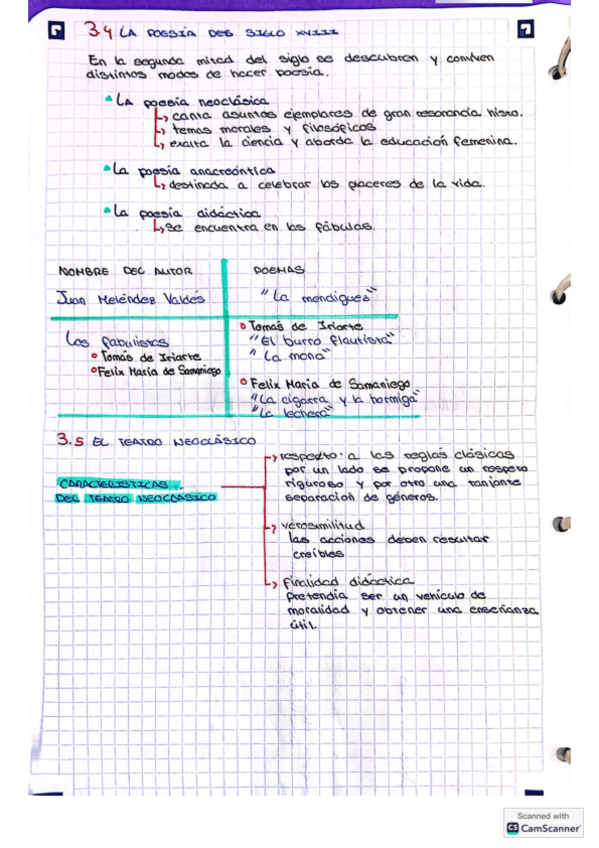 3.4 LA POESÍA DEL SIGLO XVIII
En la segunda mitad del siglo se descubren y conviven
distintos modos de hacer poesía.
LA poesía neoclásica
canta asuntos ejemplares de gran resonancia histo.
temas morales y filosóficos
exalta la ciencia y aborda la educación femenina.
La poesía anacreóntica
destinada a celebrar los placeres de la vida.
La poesía didáctica
Se encuentra en las fábulas.
NOMBRE DEL AUTOR
POEMAS
Juan Meléndez Valdés
"La mendiguez"
Los fabulistas
Tomás de Iriarte
Felix María de Samaniego
Tomás de Iriarte
"El burro flautista"
"La mona"
Felix Maria de Samaniego
"La cigarra y la hormiga"
"La lechera"
3.5 EL TEATRO NEOCLÁSICO
CARACTERISTICAS
DEL TEATRO NEOCLASICO
respecto a las reglas clásicas
por un lado se propone un respeto
riguroso y por otro una tanjante
separación de géneros.
verosimilitud
las acciones deben resultar
creíbles
finalidad didáctica
Pretendia ser un vehículo de
moralidad y obtener una enseñanza
útil.
Scanned with
CS CamScanner